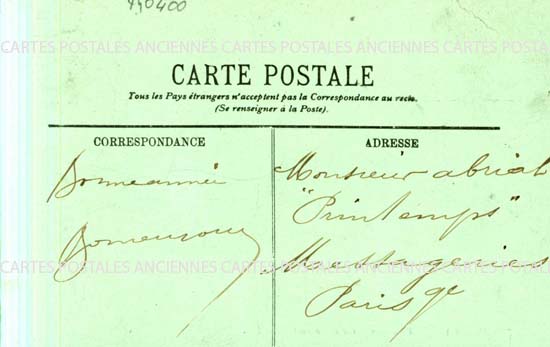 490400
CARTES POSTALES ANCIENNES CARTES POSTALES ANCIENNES CARTES POSTALES
CARTE POSTALE
Tous les Pays étrangers n'acceptent pas la Correspondance au recto.
(Se renseigner à la Poste).
CORRESPONDANCE
Bonne année
ADRESSE
Monsieur abrial
"Printemps"
Messageries
Paris 9e
CARTES POSTALES ANCIENNES CARTES POSTALES ANCIENNES CARTES POSTALES